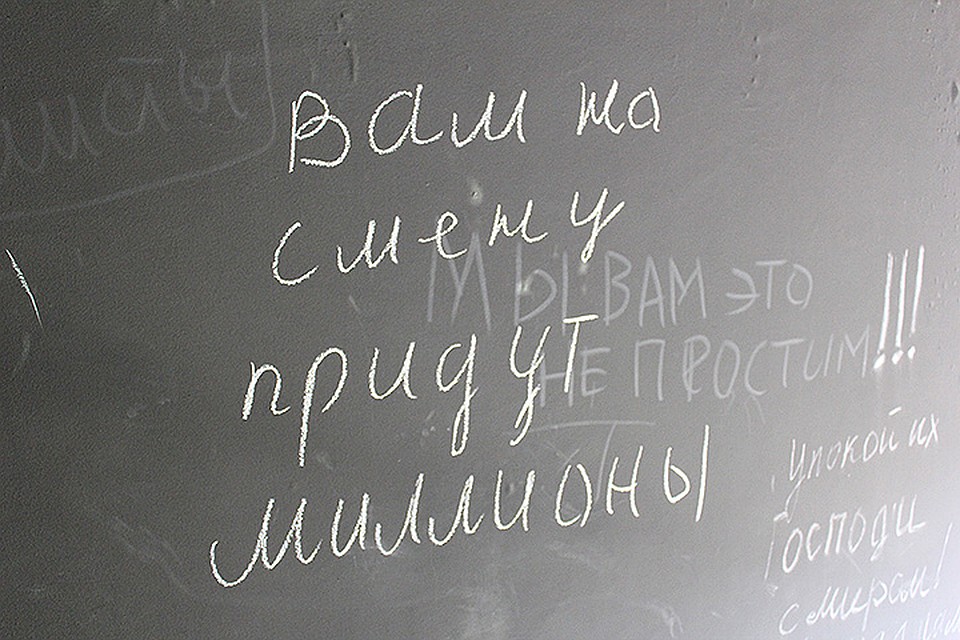 Вам на
смену
придут
миллионы
Мы ВАМ ЭТО
НЕ ПРОСТИМ!!!
Упокой их
Господи
с миром!